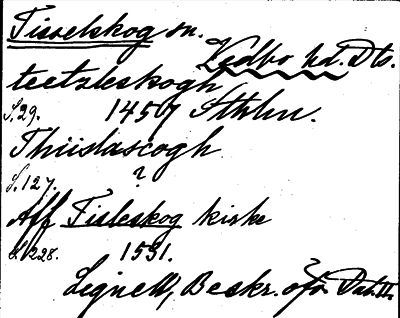 Tisselskog sn.
Vedbo hd. Dls.
teetzleskogh
S. 29. 1457 Sthlm.
Thiislascogh
S. 127. ?
Aff Tisleskog kirke
S. 228. 1531.
Lignell, Beskr. öfv. Dal. II.